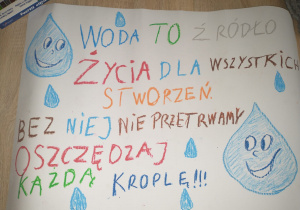 WODA TO ŹRÓDŁO
ŻYCIA DLA WSZYSTKICH
STWORZEŃ.
BEZ NIEJ NIE PRZETRWAMY
OSZCZĘDZAJ
KAŻDĄ KROPLĘ!!!